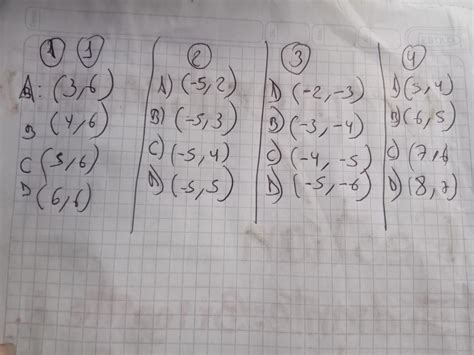 1 1
A: (3,6)
B (4,6)
C (5,6)
D (6,6)
2
A) (-5,2)
B) (-5,3)
C) (-5,4)
D) (-5,5)
3
A) (-2,-3)
B) (-3,-4)
C) (-4,-5)
D) (-5,-6)
4
A) (5,4)
B) (6,5)
C) (7,6
D) (8,7)